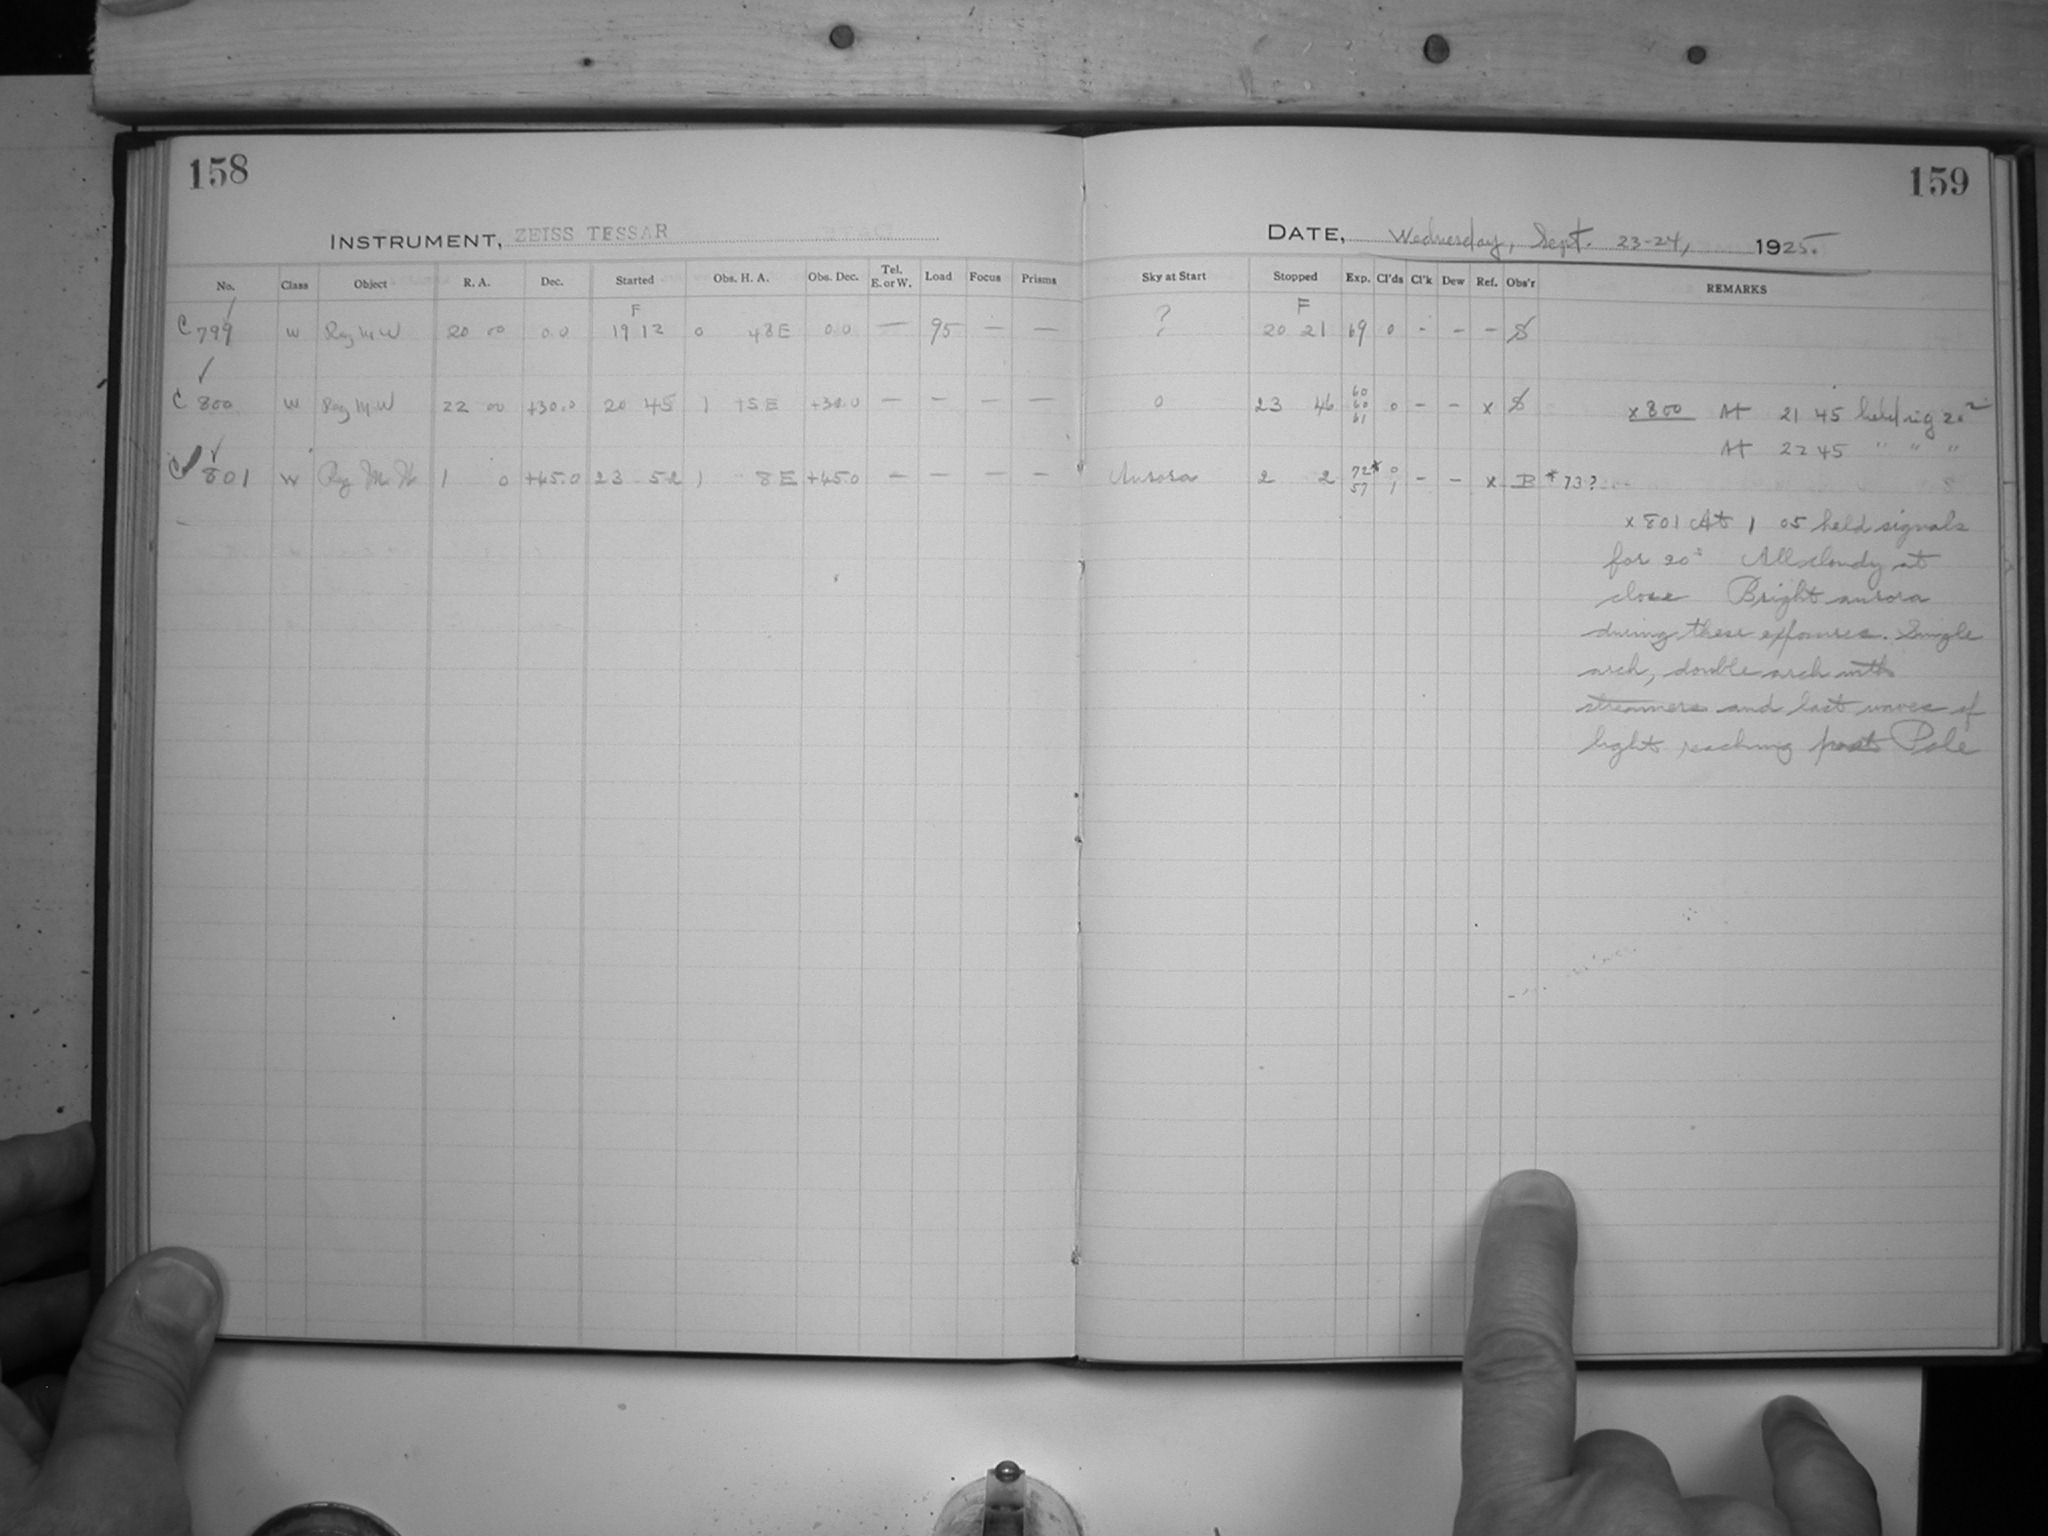 158
INSTRUMENT, ZEISS TESSAR
No. Class Object R. A. Dec. Started Obs. H. A. Obs. Dec. Tel. E. or W. Load Focus Prisms
F
C 799 W Reg M W 20 00 0.0 19 12 0 48 E 0.0 — 95 — —
C 800 W Reg M W 22 00 +30.0 20 45 1 15 E +30.0 — — — —
C 801 W Reg M. W 1 0 +45.0 23 52 1 8 E +45.0 — — — —
159
DATE, Wednesday, Sept. 23-24, 1925.
Sky at Start Stopped Exp. Cl'ds Cl'k Dew Ref. Obs'r REMARKS
F
? 20 21 69 0 - - - S
0 23 46 60 60 61 0 - - x S x 800 At 21 45 held sig 20
At 22 45 " " "
Aurora 2 2 72* 57 0 1 - - x B * 73?
x 801 At 1 05 held signals
for 20s All cloudy at
close Bright aurora
during these exposures. Single
arch, double arch with
streamers and last waves of
light reaching past Pole